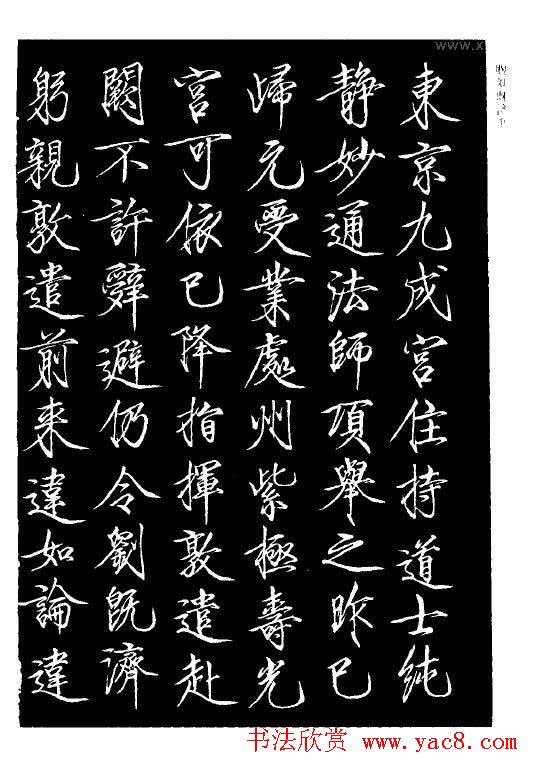 東京九成宮住持道士純
静妙通法師項舉之昨已
歸元受業處州紫極壽光
宮可依已降指揮敦遣赴
闕不許辭避仍令劉既濟
躬親敦遣前来違如論違
书法欣赏 www.yac8.com
www.x